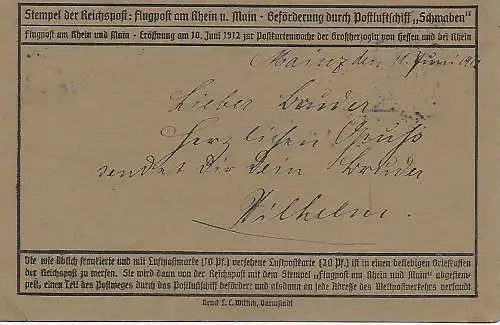 Stempel der Reichspost: Flugpost am Rhein u. Main - Beförderung durch Postluftschiff „Schwaben“
Flugpost am Rhein und Main - Eröffnung am 10. Juni 1912 zur Postkartenwoche der Großherzogin von Hessen und bei Rhein
Mainz den 11. Juni 1912
Lieber Bruder
Herzlichen Gruß
sendet Dir dein Bruder
Wilhelm.
Die wie üblich frankierte und mit Luftpostmarke (10 Pf.) versehene Luftpostkarte (20 Pf.) ist in einen beliebigen Briefkasten
der Reichspost zu werfen. Sie wird dann von der Reichspost mit dem Stempel „Flugpost am Rhein und Main“ abgestem-
pelt, einen Teil des Postweges durch das Postluftschiff befördert und alsdann an jede Adresse des Weltpostverkehrs versandt
Druck L. C. Wittich, Darmstadt